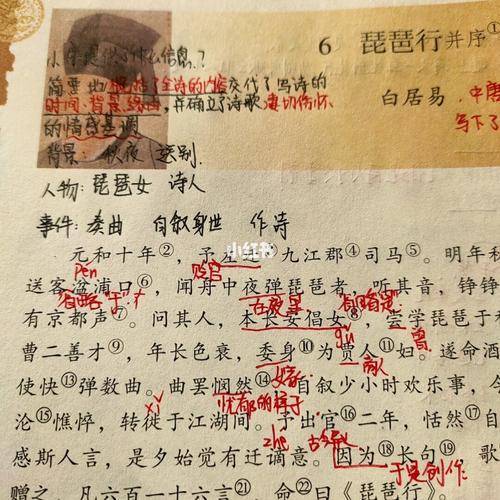 6 琵琶行并序①
白居易
中唐
写下了
小序提供了什么信息?
简要地概括了全诗的内容交代了写诗的
时间、背景、缘由,并确立了诗歌凄切伤怀
的情感基调
背景: 秋夜 送别
人物: 琵琶女 诗人
事件: 奏曲 自叙身世 作诗
元和十年②,予左迁③九江郡④司马⑤。明年秋
小红书
pén
贬官
送客湓浦口⑥,闻舟中夜弹琵琶者,听其音,铮铮
省略“于”
在夜里
有京都声⑦。问其人,本长安倡女⑧,尝学琵琶于
gǔ
曾
曹二善才⑨,年长色衰,委身⑩为贾人⑪妇。遂命酒
商人
使快⑬弹数曲。曲罢悯然⑭,自叙少小时欢乐事,今
嫁给
忧郁的样子
沦⑮憔悴,转徙于江湖间。予出官⑯二年,恬然⑰自
xǐ
zhé
感斯人言,是夕始觉有迁谪意。因为⑱长句⑲,歌
于是创作
赠之,凡六百一十六言㉑,命㉒曰《琵琶行》。